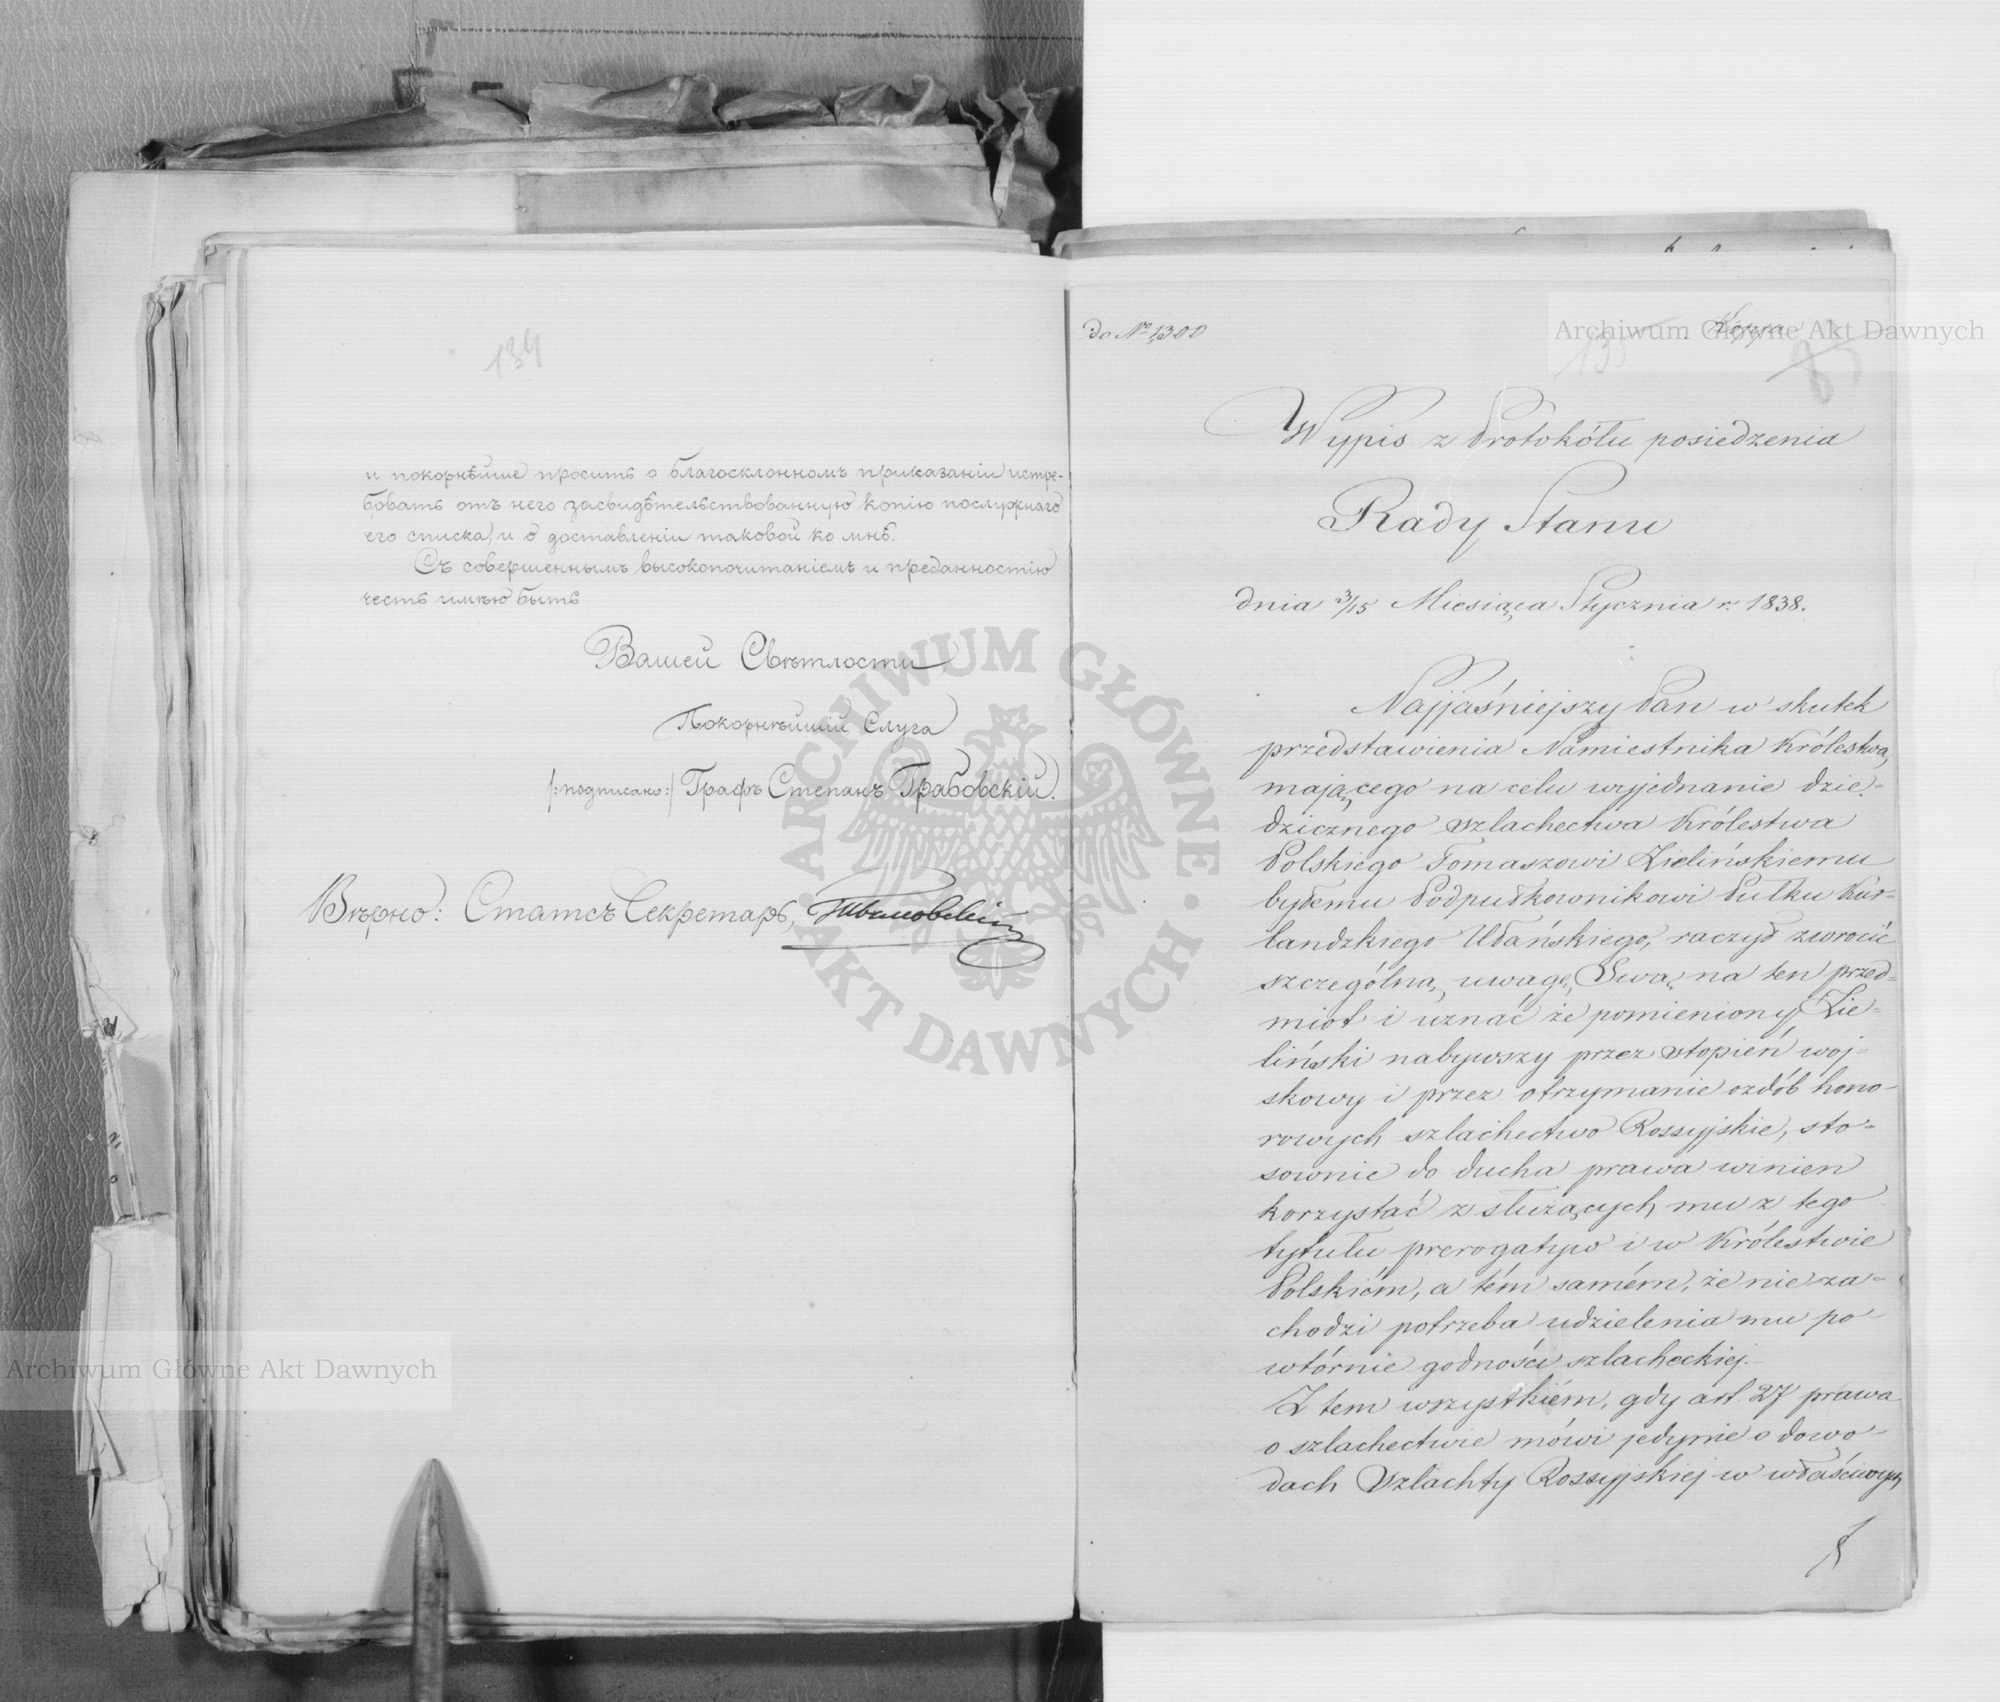 134
и покорнѣйше просить о благосклонномъ приказаніи истре-
бовать отъ него засвидѣтельствованную копію послужнаго
его списка, и о доставленіи таковой ко мнѣ.
Съ совершеннымъ высокопочитаніемъ и преданностію
честь имѣю быть
Вашей Свѣтлости
Покорнѣйшій Слуга
/:подписано:/ Графъ Степанъ Грабовскій.
Вѣрно: Статсъ Секретарь,
do № 1,300
Kopja
135
Wypis z Protokółu posiedzenia
Rady Stanu
dnia 3/15 Miesiąca Stycznia r. 1838.
Najjaśniejszy Pan w skutek
przedstawienia Namiestnika Królestwa,
mającego na celu wyjednanie dzie-
dzicznego szlachectwa Królestwa
Polskiego Tomaszowi Zielińskiemu
byłemu Podpułkownikowi Pułku Kur-
landzkiego Ułańskiego, raczył zwrócić
szczególną uwagę Swą na ten przed-
miot i uznać że pomieniony Zie-
liński nabywszy przez stopień woj-
skowy i przez otrzymanie ozdób hono-
rowych szlachectwo Rossyjskie, sto-
sownie do ducha prawa winien
korzystać z służących mu z tego
tytułu prerogatyw i w Królestwie
Polskiém, a tém samém, że nie za-
chodzi potrzeba udzielenia mu po-
wtórnie godności szlacheckiej.
Z tem wszystkiém, gdy art. 27 prawa
o szlachectwie mówi jedynie o dowo-
dach Szlachty Rossyjskiej w właściwych
Archiwum Główne Akt Dawnych
ARCHIWUM GŁÓWNE AKT DAWNYCH
Archiwum Główne Akt Dawnych